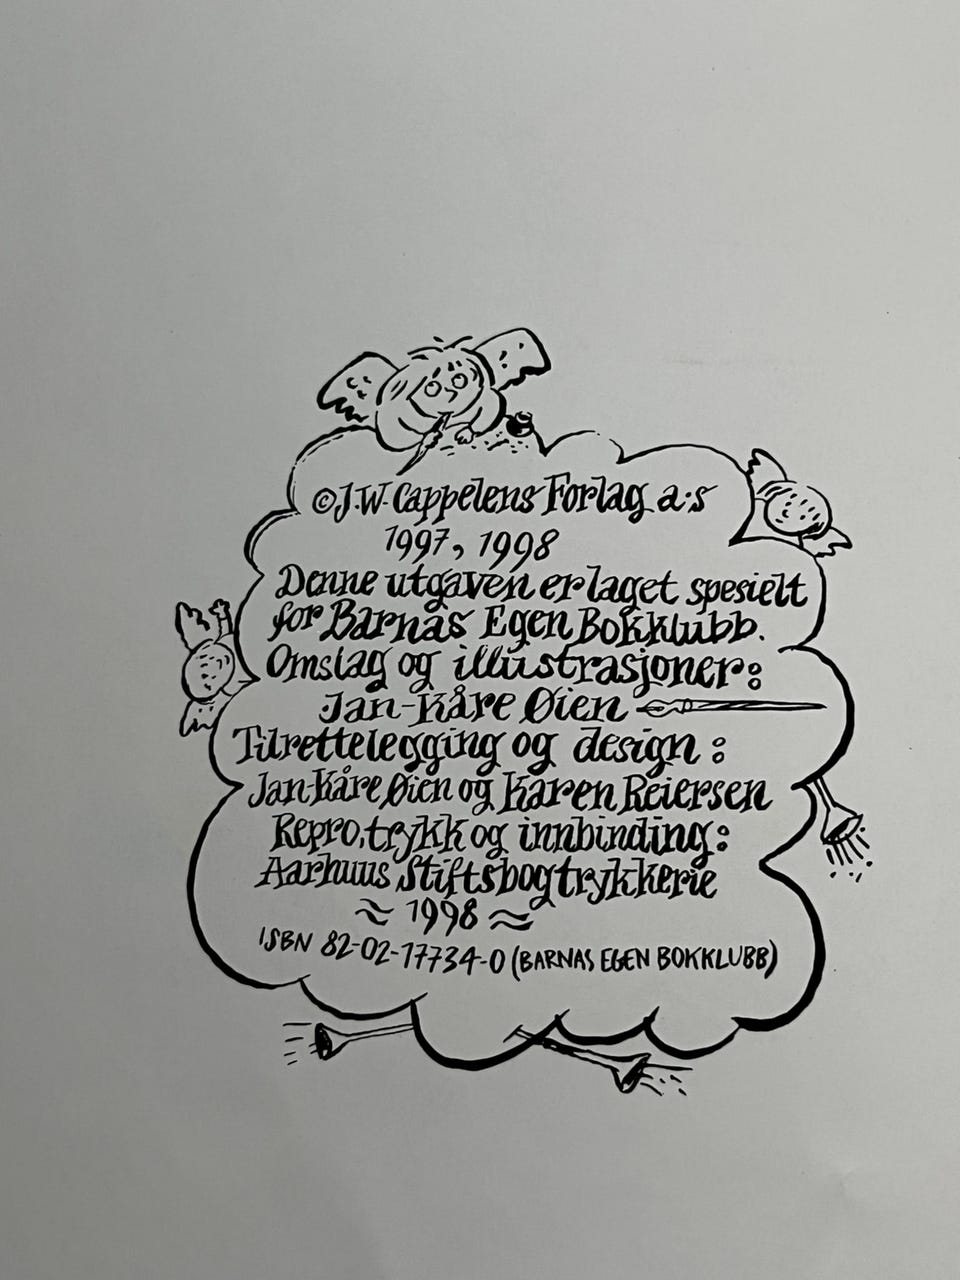 ©J.W. Cappelens Forlag a.s
1997, 1998
Denne utgaven er laget spesielt
for Barnas Egen Bokklubb.
Omslag og illustrasjoner:
Jan-Kåre Øien
Tilrettelegging og design:
Jan-Kåre Øien og Karen Reiersen
Repro, trykk og innbinding:
Aarhuus Stiftsbogtrykkerie
≈ 1998 ≈
ISBN 82-02-17734-0 (BARNAS EGEN BOKKLUBB)